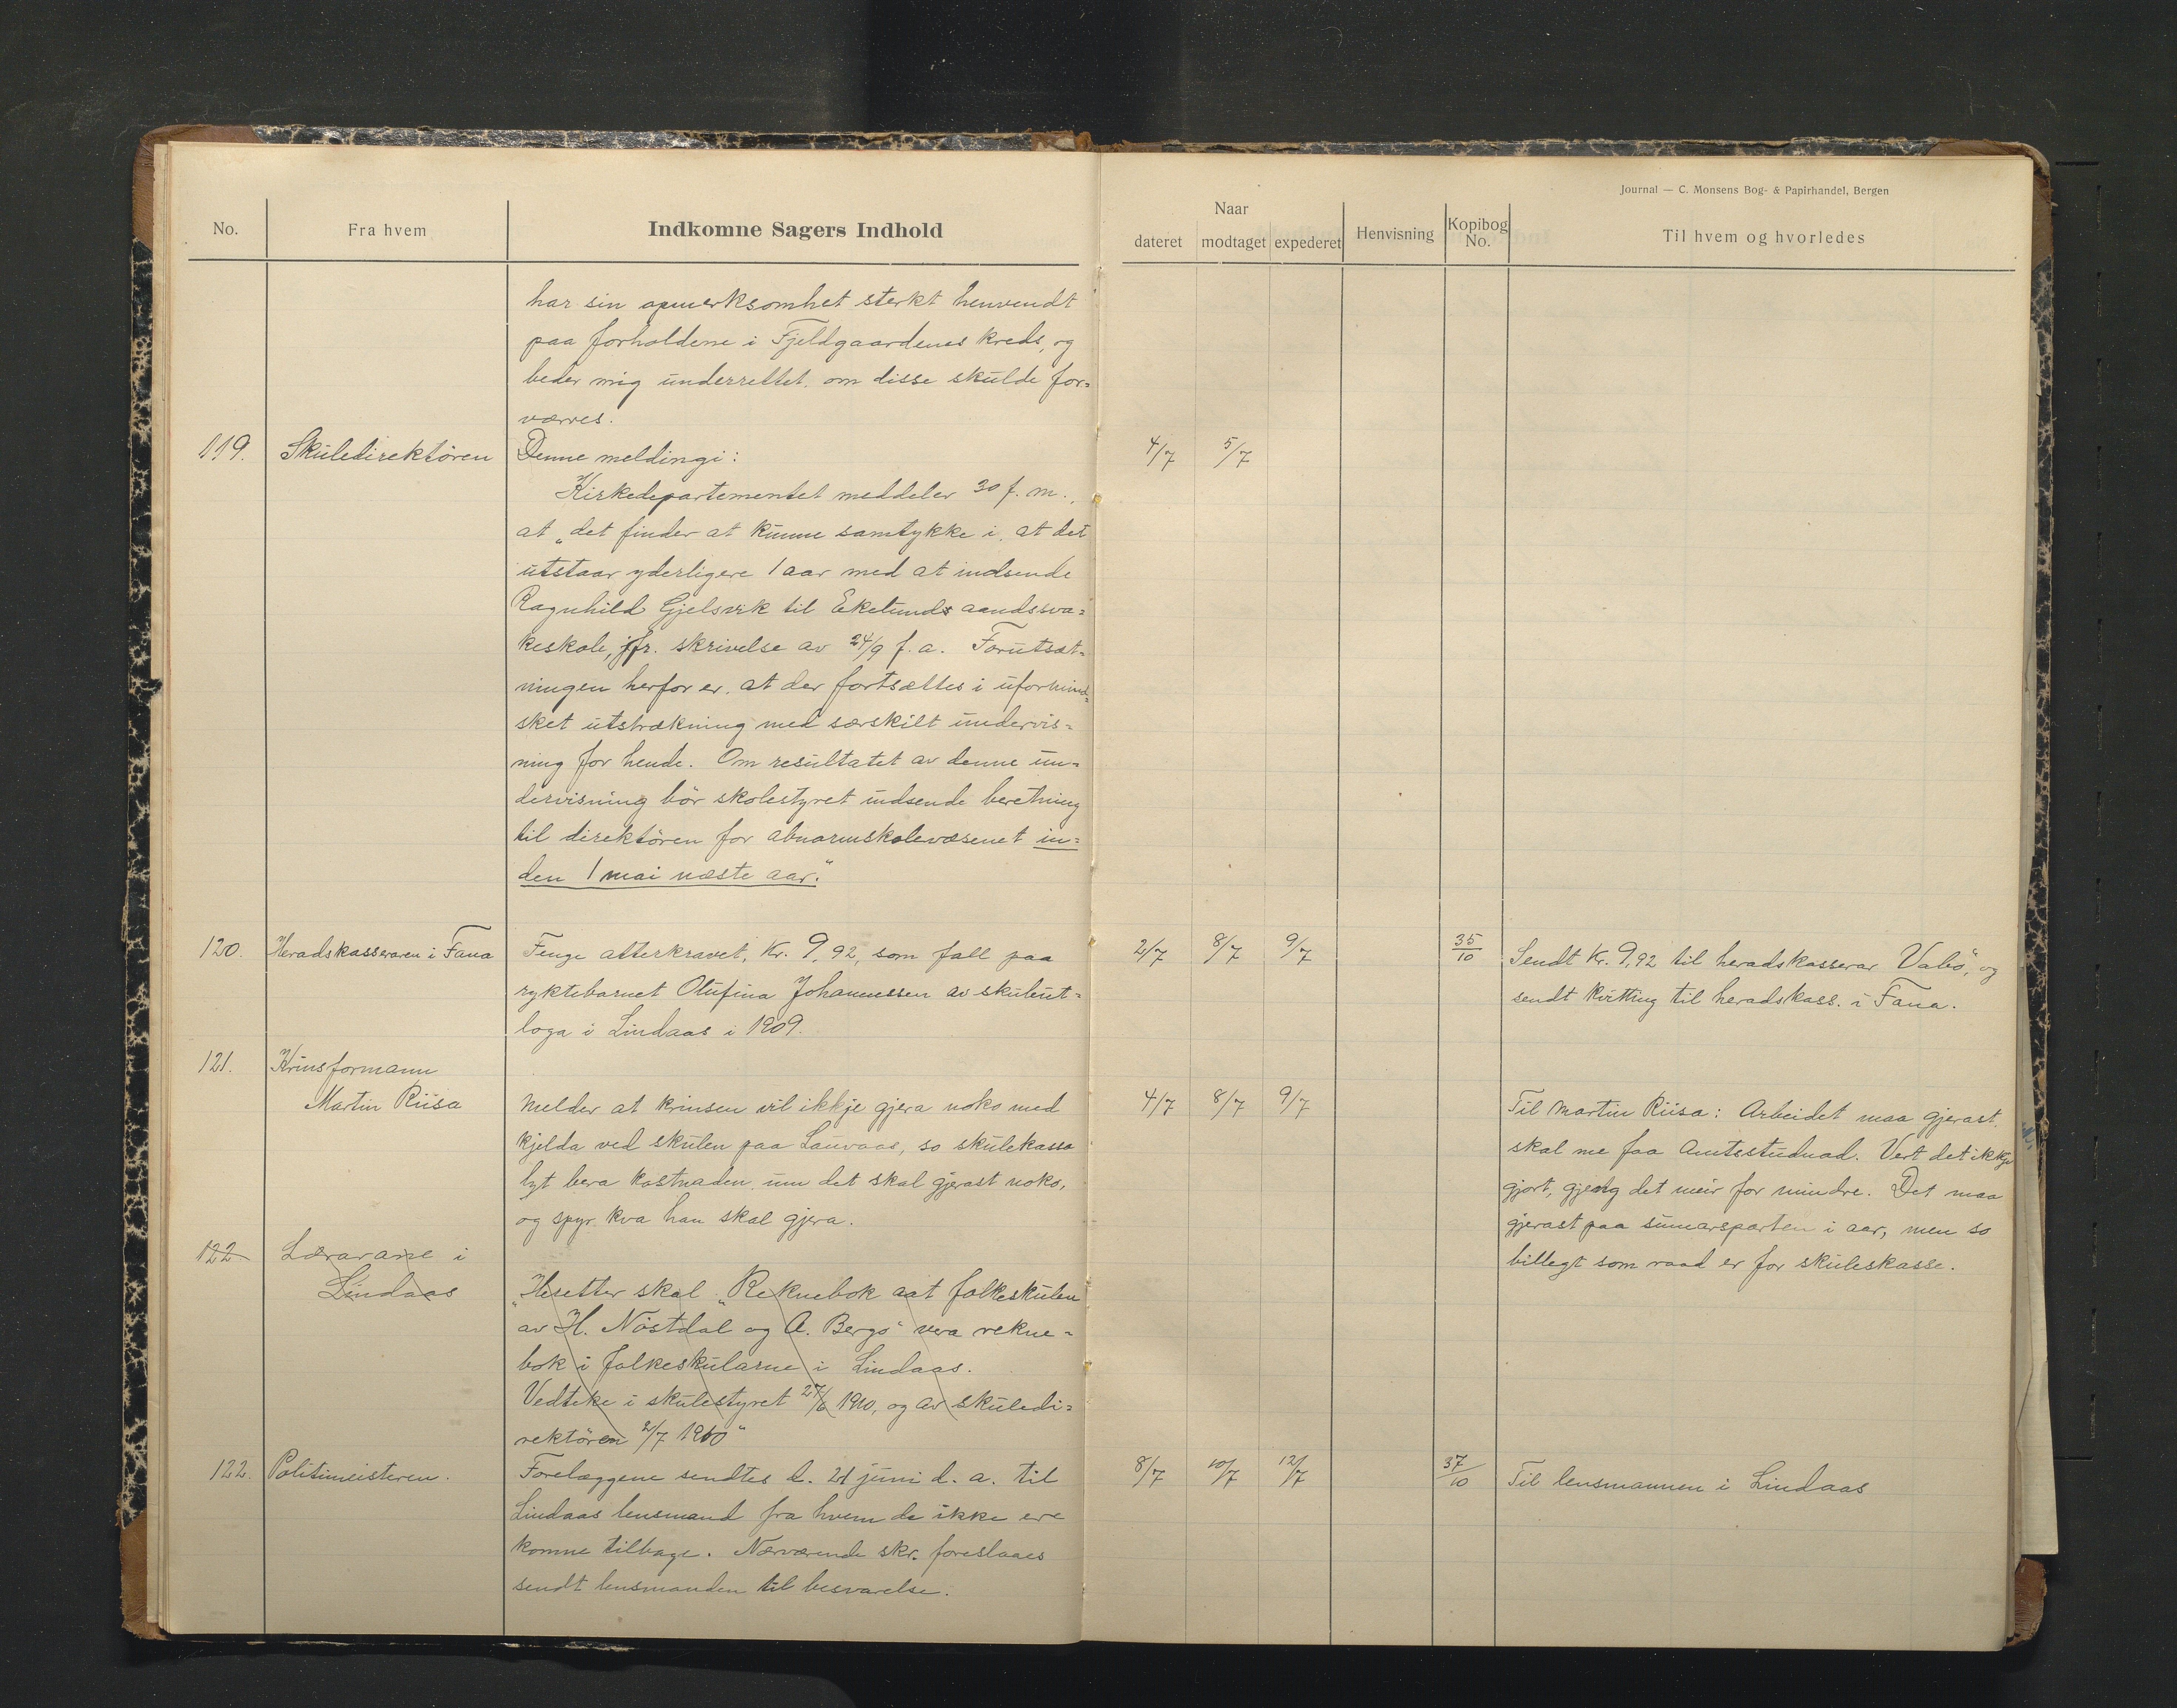 Journal — C. Monsens Bog- & Papirhandel, Bergen
No. Fra hvem Indkomne Sagers Indhold Naar dateret modtaget expederet Henvisning Kopibog No. Til hvem og hvorledes
har sin opmerksomhet sterkt henvendt
paa forholdene i Fjeldgaardenes kreds, og
beder mig underrettet om disse skulde for-
værres.
119. Skuledirektören Denne meldingi: 4/7 5/7
Kirkedepartementet meddeler 30 f. m.,
at „det finder at kunne samtykke i, at det
utstaar yderligere 1 aar med at indsende
Ragnhild Gjelsvik til Ekelunds aandssva-
keskole, jfr. skrivelse av 24/9 f. a. Forutsæt-
ningen herfor er, at der fortsættes i uformind-
sket utstrækning med særskilt undervis-
ning for hende. Om resultatet av denne un-
dervisning bör skolestyret indsende beretning
til direktören for abnormskolevæsenet in-
den 1 mai næste aar."
120. Heradskasseraren i Fana Fenge atterkravet, Kr. 9,92, som fall paa 2/7 8/7 9/7 35/10 Sendt Kr. 9,92 til heradskasserar Vabö, og
ryktebarnet Olufina Johannessen av skuleut- sendt kvitting til heradskass. i Fana.
loga i Lindaas i 1909.
121. Krinsformann
Martin Riisa melder at krinsen vil ikkje gjera noko med 4/7 8/7 9/7 Til Martin Riisa: Arbeidet maa gjerast,
kjelda ved skulen paa Lauvaas, so skulekassa skal me faa Amtsstudnad. Vert det ikkje
lyt bera kostnaden, um det skal gjerast noko, gjort, gjeng det meir for mindre. Det maa
og spyr kva han skal gjera. gjerast paa sumarsparten i aar, men so
122 Lærarane i billegt som raad er for skuleskasse.
Lindaas
„Heretter skal „Reknebok aat folkeskulen
av H. Nöstdal og A. Bergo" vera rekne-
bok i folkeskularne i Lindaas.
Vedteke i skulestyret 27/6 1910, og av skuledi-
rektören 2/7 1910"
122. Politimeisteren. Forelæggene sendtes d. 21 juni d. a. til 8/7 10/7 12/7 37/10 Til lensmannen i Lindaas
Lindaas lensmand fra hvem de ikke ere
komne tilbage. Nærværende skr. foreslaaes
sendt lensmanden til besvarelse.